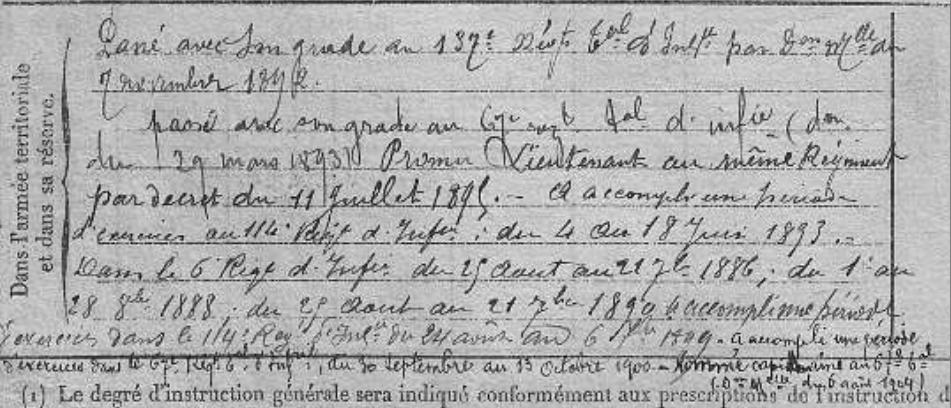 Dans l'armée territoriale
et dans sa réserve.
Passé avec son grade au 137e Régt Tal d'Infie par Don Mlle du
7 novembre 1892.
passé avec son grade au 67e regt Tal d'infie (don
du 29 mars 1893) Promu Lieutenant au même Régiment
par decret du 11 Juillet 1895. - A accompli une période
d'exercices au 114e Regt d'Infie : du 4 au 18 Juin 1893. -
Dans le 6e Regt d'Infie du 25 Aout au 21 7bre 1886, du 1er au
28 8bre 1888, du 25 Aout au 21 7bre 1890 a accompli une période
d'exercices dans le 114e Regt d'Infie du 24 août au 6 7bre 1899 - a accompli une période
d'exercices dans le 67e Regt t d'Infie, du 30 Septembre au 13 Octobre 1900 - Nommé capitaine au 67e t al
(Don Mlle du 6 août 1904)
(1) Le degré d'instruction générale sera indiqué conformément aux prescriptions de l'instruction